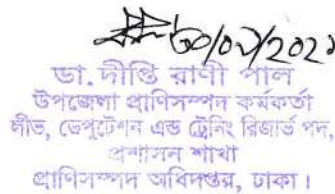 ৩০/০৬/২০২১
ডা. দীপ্তি রাণী পাল
উপজেলা প্রাণিসম্পদ কর্মকর্তা
লীভ, ডেপুটেশন এন্ড ট্রেনিং রিজার্ভ পদ,
প্রশাসন শাখা
প্রাণিসম্পদ অধিদপ্তর, ঢাকা।